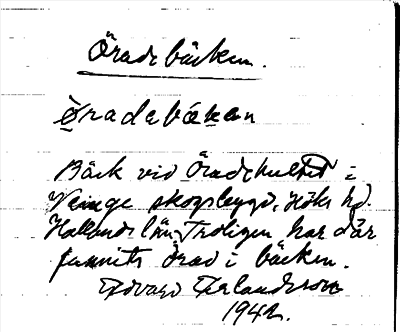 Öradebäcken.
Öradabäkan
Bäck vid Öradekulted i
Veinge skogsbygd, Höks hd.
Hallands län. Troligen har där
funnits örad i bäcken.
Edvard Erlandsson
1942.